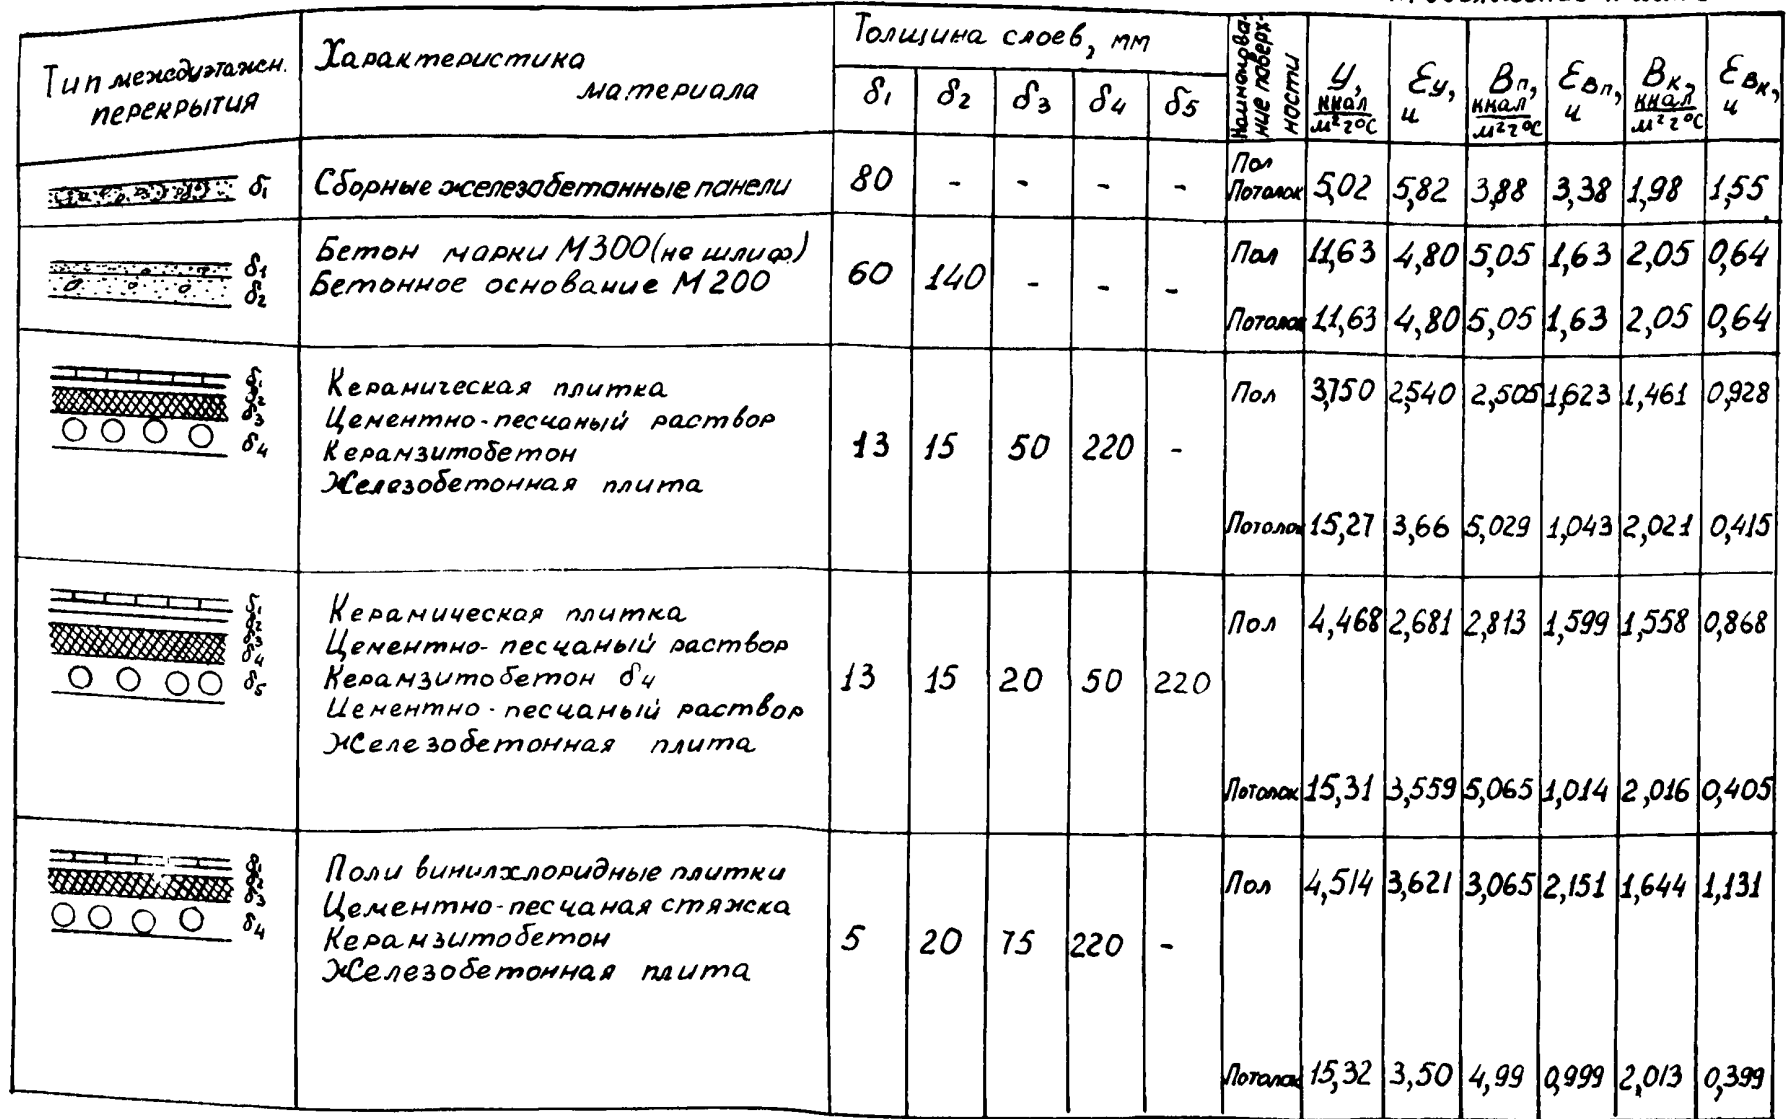 Тип междуэтажн. перекрытия
Характеристика материала
Толщина слоев, мм
δ1 δ2 δ3 δ4 δ5
Наименование поверхности
У, ккал/м²г°С
Еу, ч
Вп, ккал/м²г°С
ЕВп, ч
Вк, ккал/м²г°С
ЕВк, ч
δ1
Сборные железобетонные панели
80 - - - -
Пол
Потолок 5,02 5,82 3,88 3,38 1,98 1,55
δ1
δ2
Бетон марки М300 (не шлиф)
Бетонное основание М200
60 140 - - -
Пол 11,63 4,80 5,05 1,63 2,05 0,64
Потолок 11,63 4,80 5,05 1,63 2,05 0,64
δ1
δ2
δ3
δ4
Керамическая плитка
Цементно-песчаный раствор
Керамзитобетон
Железобетонная плита
13 15 50 220 -
Пол 3,750 2,540 2,505 1,623 1,461 0,928
Потолок 15,27 3,66 5,029 1,043 2,021 0,415
δ1
δ2
δ3
δ4
δ5
Керамическая плитка
Цементно-песчаный раствор
Керамзитобетон δ4
Цементно-песчаный раствор
Железобетонная плита
13 15 20 50 220
Пол 4,468 2,681 2,813 1,599 1,558 0,868
Потолок 15,31 3,559 5,065 1,014 2,016 0,405
δ1
δ2
δ3
δ4
Поливинилхлоридные плитки
Цементно-песчаная стяжка
Керамзитобетон
Железобетонная плита
5 20 75 220 -
Пол 4,514 3,621 3,065 2,151 1,644 1,131
Потолок 15,32 3,50 4,99 0,999 2,013 0,399